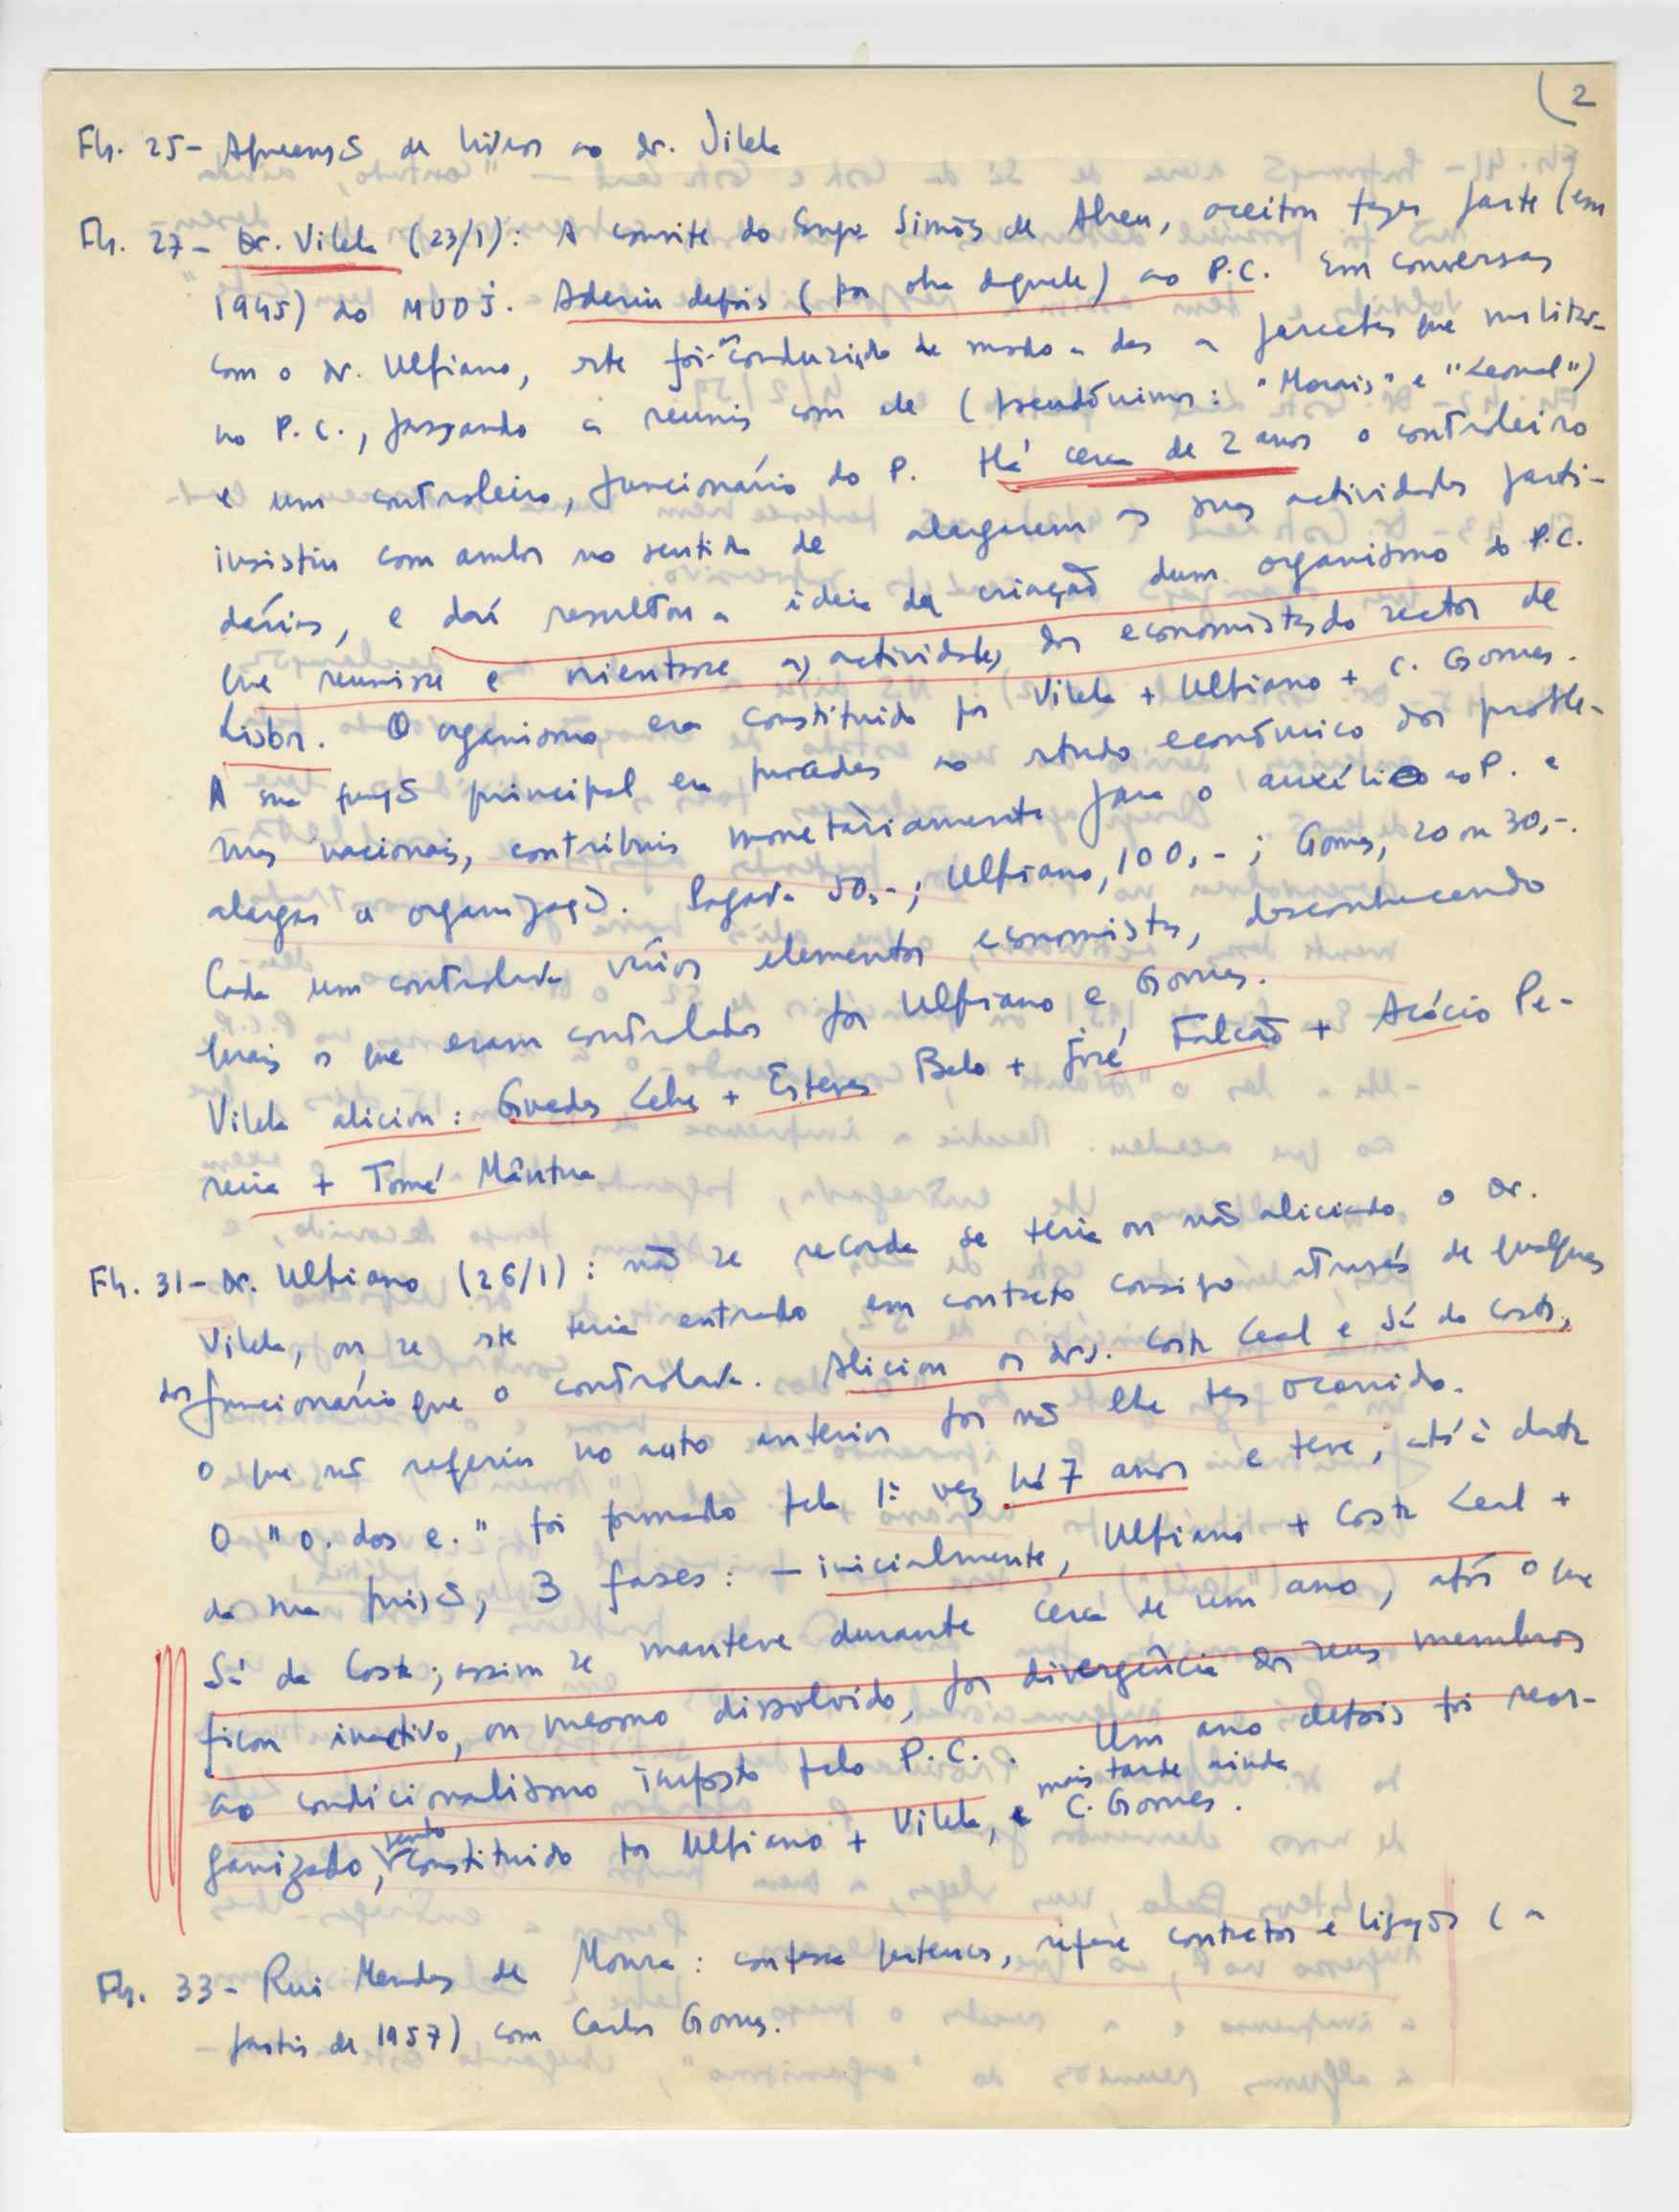 (2
Fls. 25 - Apreensão de livros ao dr. Vilela
Fls. 27 - Dr. Vilela (23/1): A convite do Engº Simões de Abreu, aceitou fazer parte (em
1945) do MUDJ. Aderiu depois (por obra daquele) ao P.C. Em conversas
com o dr. Ulpiano, este foi-o conduzindo de modo a dar a perceber que milita-
no P.C., passando a reunir com ele (pseudónimos: "Morais" e "Leonel")
e um controleiro, funcionário do P. Há cerca de 2 anos o controleiro
insistiu com ambos no sentido de alargarem as suas actividades parti-
dárias, e daí resultou a ideia da criação dum organismo do P.C.
que reunisse e orientasse as actividades dos economistas do sector de
Lisboa. O organismo era constituído por Vilela + Ulpiano + C. Gomes.
A sua função principal era proceder ao estudo económico dos proble-
mas nacionais, contribuir monetàriamente para o auxílio ao P. e
alargar a organização. Pagava 50,-; Ulpiano, 100,-; Gomes, 20 ou 30,-.
Cada um controlava vários elementos economistas, desconhecendo
quais os que eram controlados por Ulpiano e Gomes.
Vilela aliciou: Guedes Lebre + Esteves Belo + José Falcão + Acácio Pe-
reira + Tomé Mântua
Fls. 31 - Dr. Ulpiano (26/1): não se recorda se teria ou não aliciado o Dr.
Vilela, ou se este teria entrado em contacto consigo através de qualquer
dos funcionário que o controlava. Aliciou os drs. Costa Leal e Sá da Costa,
o que não referiu no auto anterior por não lhe ter ocorrido.
O "o. dos e." foi formado pela 1ª vez há 7 anos e teve, até à data
da sua prisão, 3 fases: - inicialmente, Ulpiano + Costa Leal +
Sá da Costa; assim se manteve durante cerca de um ano, após o que
ficou inactivo, ou mesmo dissolvido, por divergência dos seus membros
ao condicionalismo imposto pelo P.C.. Um ano depois foi reor-
ganizado, sendo constituído por Ulpiano + Vilela, e mais tarde ainda C. Gomes.
Fls. 33 - Rui Mendes de Moura: confessa pertencer, refere contactos e ligações (a
partir de 1957) com Carlos Gomes.